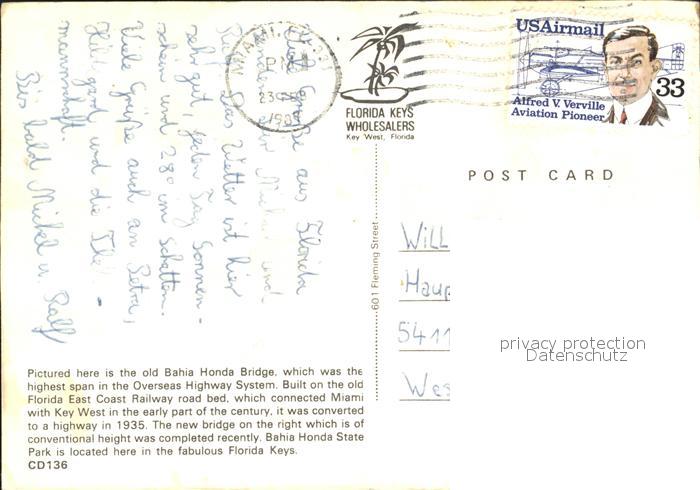 Viele Grüße aus Florida
senden Euch Nickel und
Ralf. Das Wetter ist hier
sehr gut, jeden Tag Sonnen-
schein und 28° im Schatten.
Viele Grüße auch an Petra,
Hildgard und die
mannschaft.
Bis bald Nickel u. Ralf
MIAMI, FL
PM
23
FLORIDA KEYS
WHOLESALERS
Key West, Florida
USAirmail
33
Alfred V. Verville
Aviation Pioneer
POST CARD
601 Fleming Street
Will
Haup
5411
Wes
privacy protection
Datenschutz
Pictured here is the old Bahia Honda Bridge, which was the
highest span in the Overseas Highway System. Built on the old
Florida East Coast Railway road bed, which connected Miami
with Key West in the early part of the century, it was converted
to a highway in 1935. The new bridge on the right which is of
conventional height was completed recently. Bahia Honda State
Park is located here in the fabulous Florida Keys.
CD136